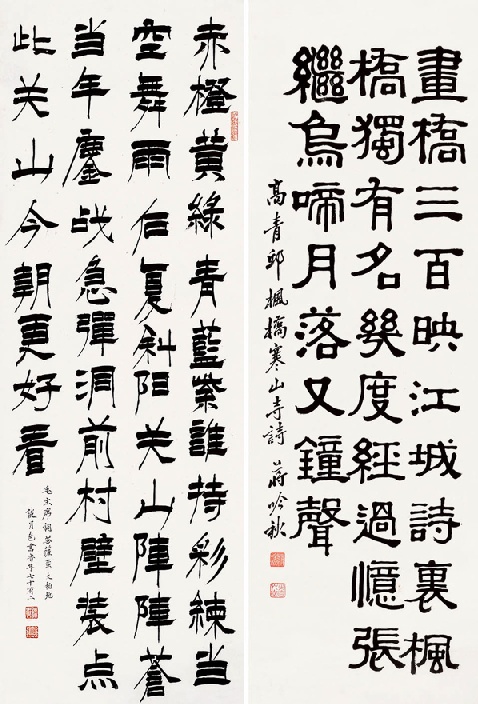 畫橋三百映江城詩裏楓
橋獨有名幾度經過憶張
繼烏啼月落又鐘聲
高青邱楓橋寒山寺詩 蔣吟秋
赤橙黄綠青藍紫誰持彩練当
空舞雨后复斜阳关山陣陣蒼
当年鏖战急彈洞前村壁装点
此关山今朝更好看
毛主席詞菩薩蛮大柏地
月色書時年七十有二